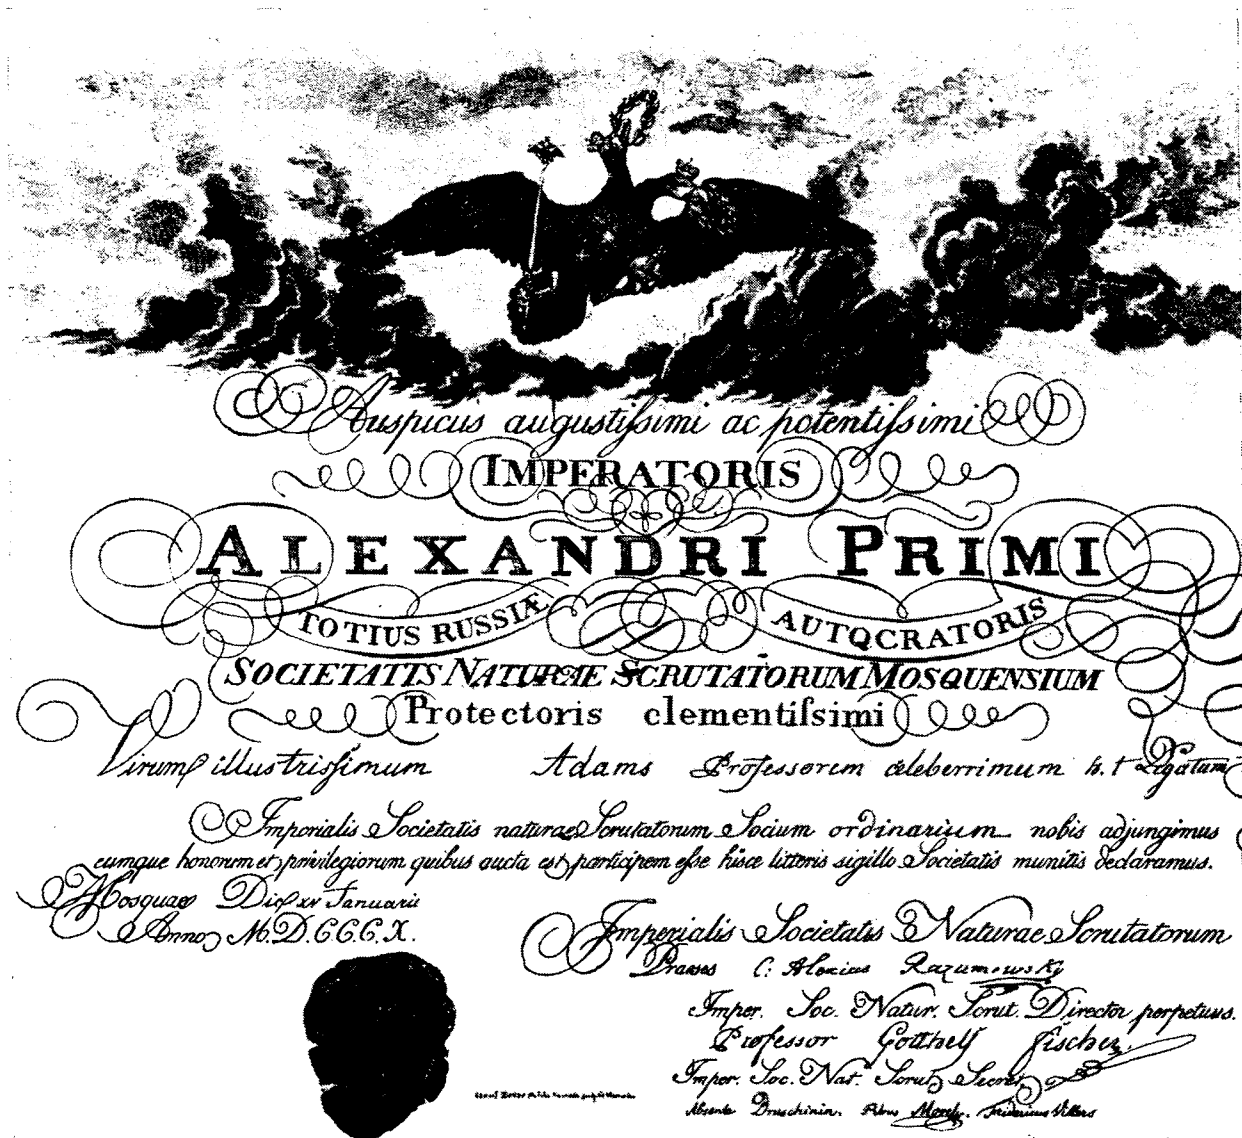 Auspicus augustissimi ac potentissimi
IMPERATORIS
ALEXANDRI PRIMI
TOTIUS RUSSIÆ AUTOCRATORIS
SOCIETATIS NATURAE SCRUTATORUM MOSQUENSIUM
Protectoris clementissimi
Virum illustrissimum Adams Professorem celeberrimum h. t Ligatum
Imperialis Societatis naturae Scrutatorum Socium ordinarium nobis adjungimus
eumque honorum et privilegiorum quibus aucta est participem esse hisce litteris sigillo Societatis munitis declaramus.
Mosquae Die xv Januarii
Anno M.D.C.C.C.X.
Imperialis Societatis Naturae Scrutatorum
Praeses C: Alexius Razumowsky
Imper. Soc. Natur. Scrut. Director perpetuus.
Professor Gotthelf Fischer.
Imper. Soc. Nat. Scrut. Secret.
Absente Druschinin. Fridericus Villers